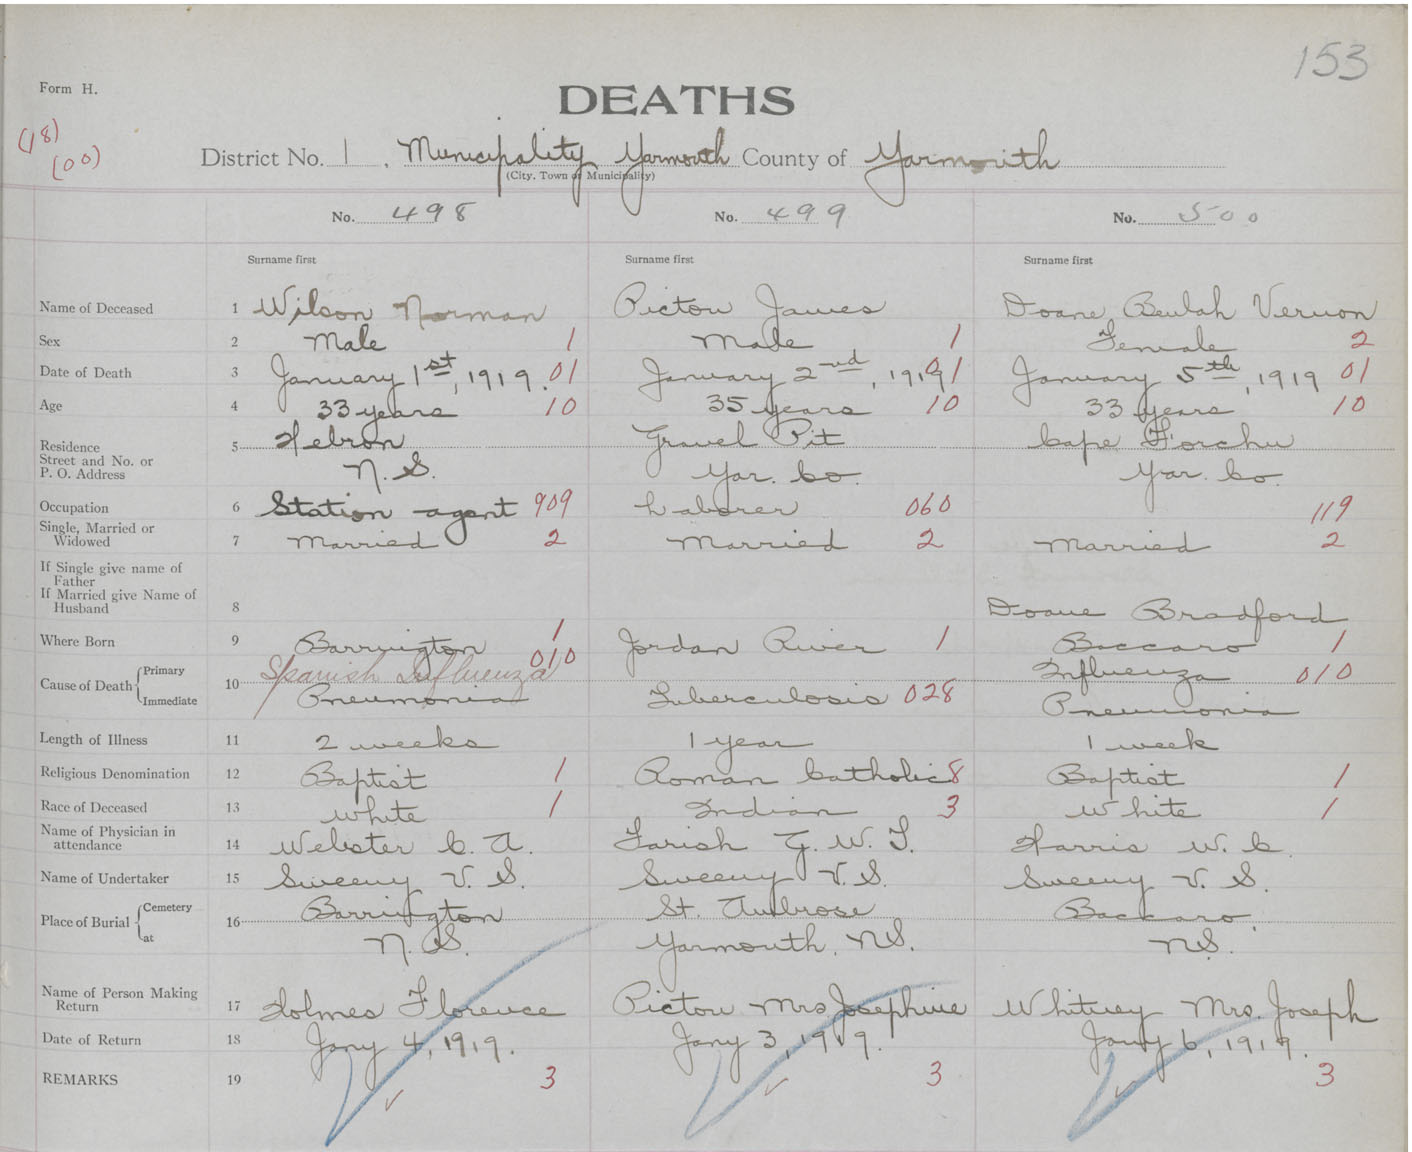 153
Form H.
DEATHS
(18)
(00)
District No. 1, Municipality Yarmouth County of Yarmouth
(City, Town or Municipality)
No. 498 No. 499 No. 500
Surname first Surname first Surname first
Name of Deceased 1 Wilson Norman Pictou James Doane Beulah Vernon
Sex 2 Male 1 Male 1 Female 2
Date of Death 3 January 1st, 1919. 01 January 2nd, 1919 01 January 5th, 1919 01
Age 4 33 years 10 35 years 10 33 years 10
Residence 5 Hebron Gravel Pit Cape Forchu
Street and No. or
P. O. Address N. S. Yar. Co. Yar. Co.
Occupation 6 Station agent 909 Laborer 060 119
Single, Married or
Widowed 7 Married 2 Married 2 Married 2
If Single give name of
Father
If Married give Name of
Husband 8 Doane Bradford
Where Born 9 Barrington 1 Jordan River 1 Baccaro 1
Cause of Death Primary 10 Spanish Influenza 010 Influenza 010
Immediate Pneumonia Tuberculosis 028 Pneumonia
Length of Illness 11 2 weeks 1 year 1 week
Religious Denomination 12 Baptist 1 Roman Catholic 8 Baptist 1
Race of Deceased 13 White 1 Indian 3 White 1
Name of Physician in
attendance 14 Webster C. A. Farish G. W. T. Harris W. C.
Name of Undertaker 15 Sweeny V. S. Sweeny V. S. Sweeny V. S.
Place of Burial Cemetery 16 Barrington St. Ambrose Baccaro,
at N. S. Yarmouth, N.S. N.S.
Name of Person Making
Return 17 Holmes Florence Pictou Mrs Josephine Whitney Mrs. Joseph
Date of Return 18 Jany 4, 1919. Jany 3, 1919. Jany 6, 1919.
REMARKS 19 3 3 3